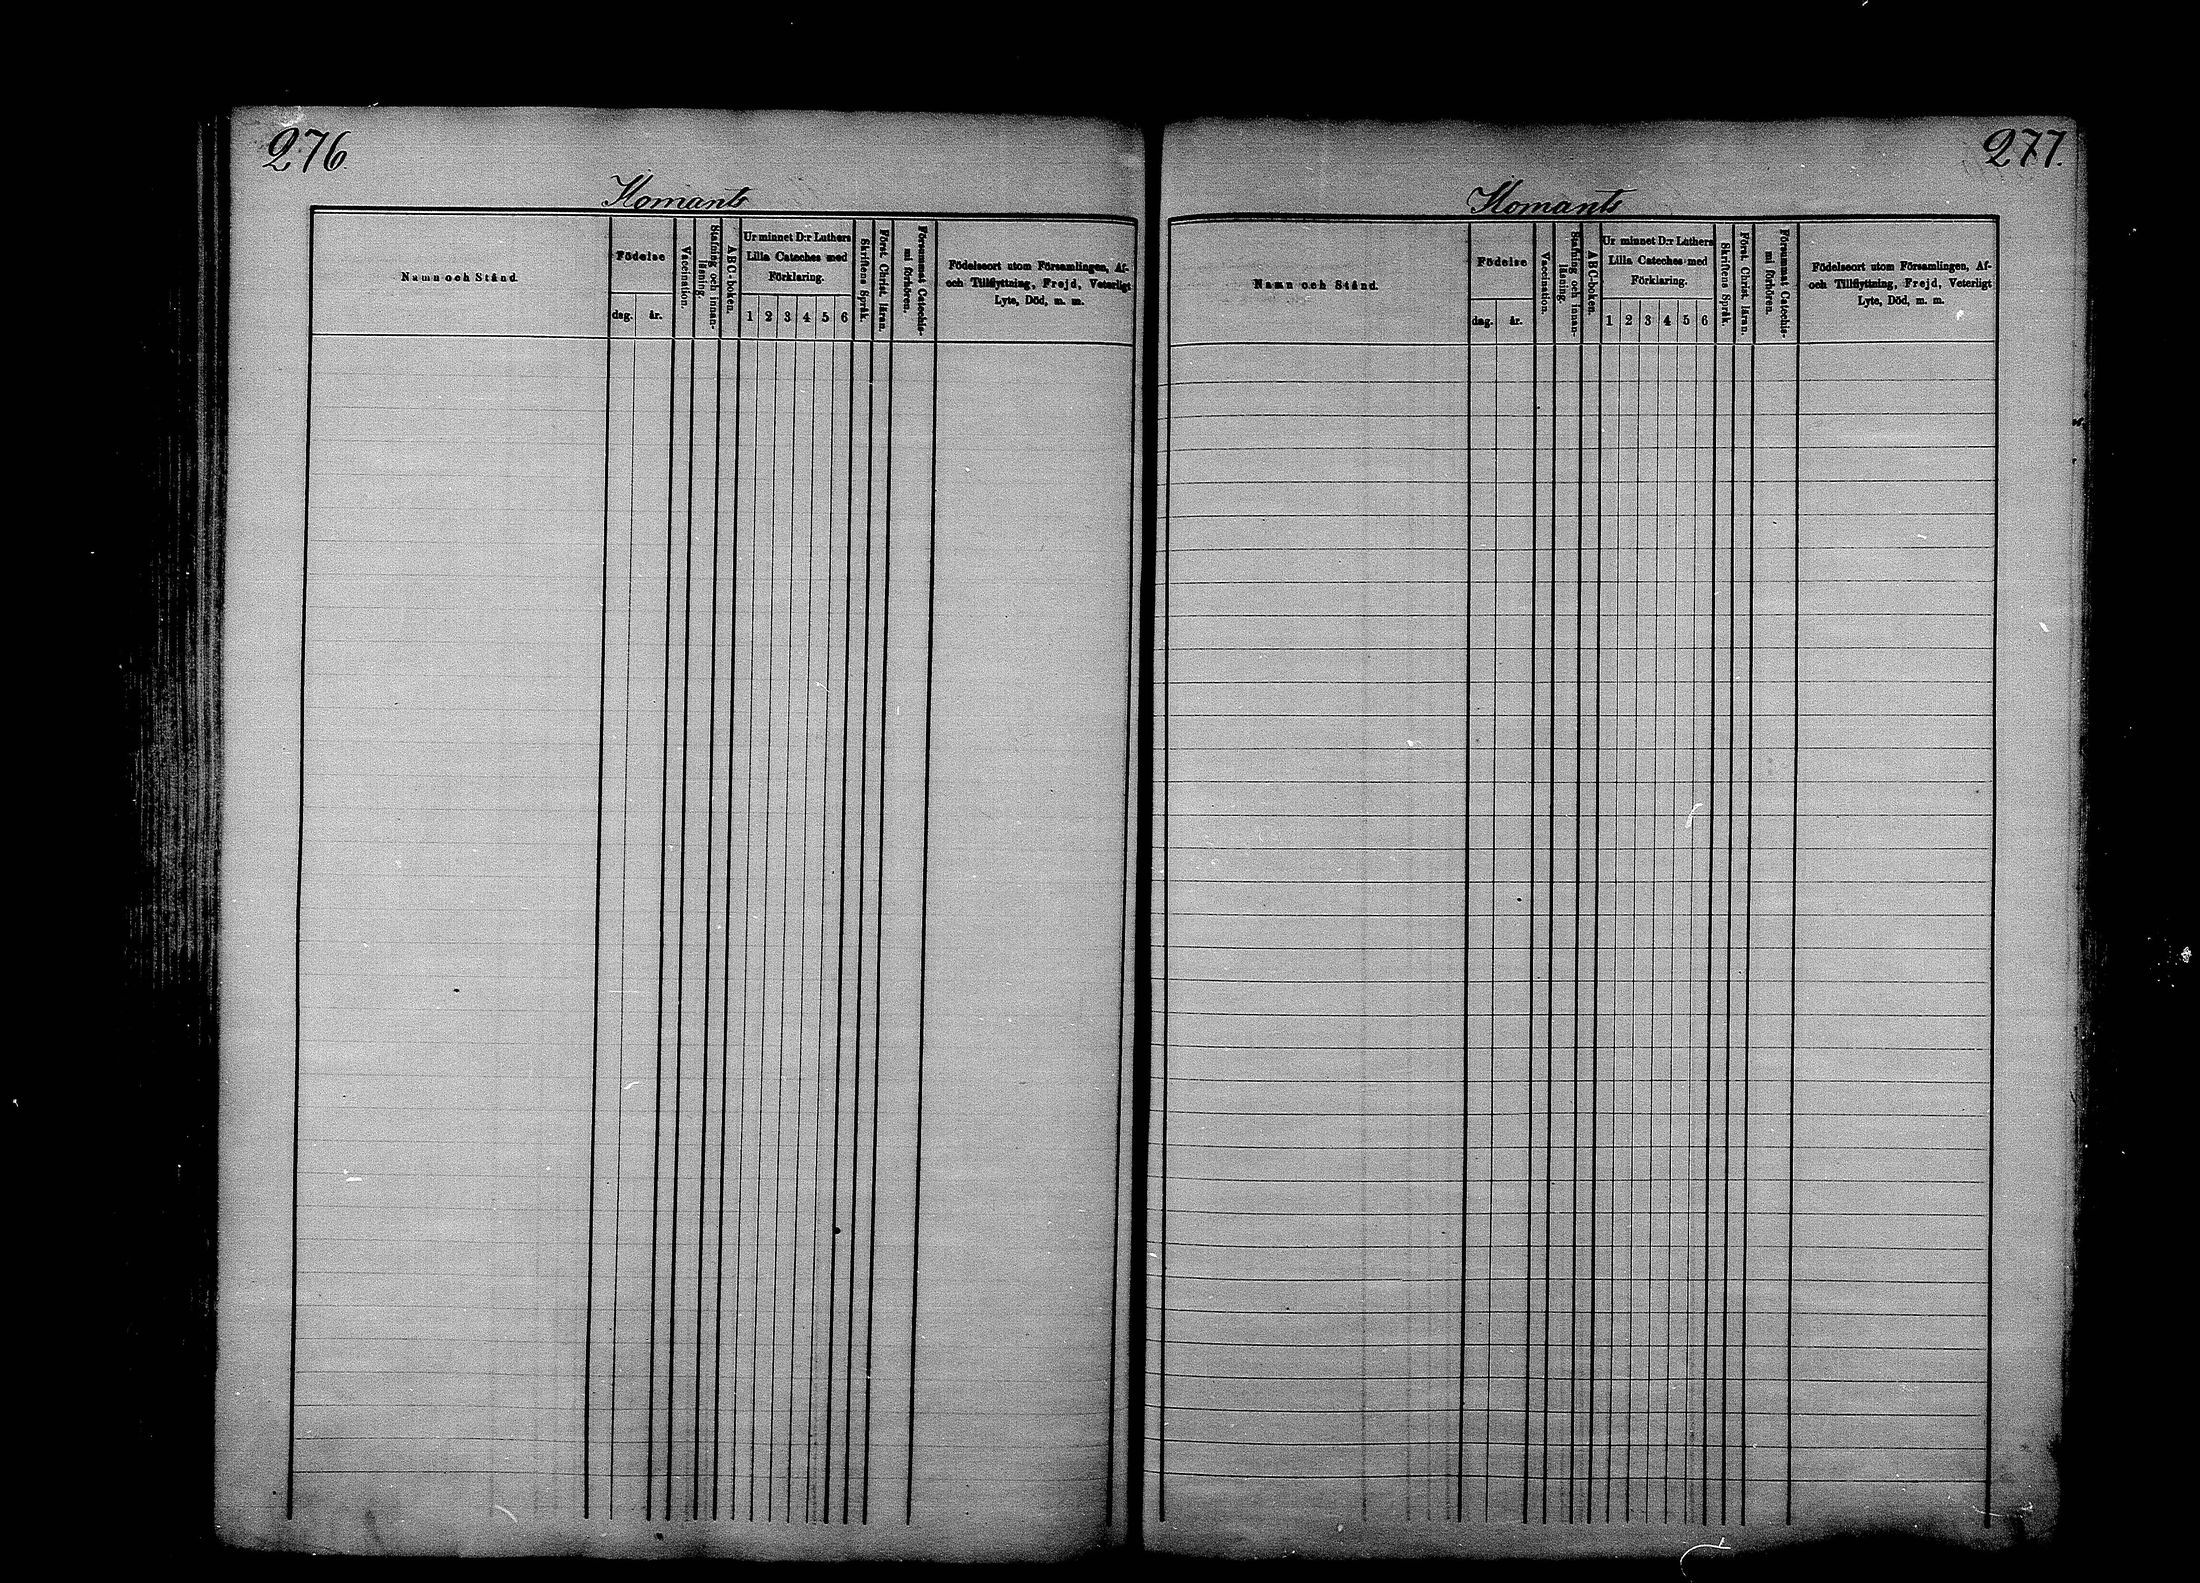 276.
Klomants
Namn och Stånd.
Födelse
dag. år.
Vaccination.
Stafning och innan-
läsning.
ABC-boken.
Ur minnet D:r Luthers
Lilla Cateches med
Förklaring.
1 2 3 4 5 6
Skriftens Språk.
Först. Christ. läran.
Försummat Catechis-
mi förhören.
Födelseort utom Församlingen, Af-
och Tillflyttning, Frejd, Veterligt
Lyte, Död, m. m.
277.
Klomants
Namn och Stånd.
Födelse
dag. år.
Vaccination.
Stafning och innan-
läsning.
ABC-boken.
Ur minnet D:r Luthers
Lilla Cateches med
Förklaring.
1 2 3 4 5 6
Skriftens Språk.
Först. Christ. läran.
Försummat Catechis-
mi förhören.
Födelseort utom Församlingen, Af-
och Tillflyttning, Frejd, Veterligt
Lyte, Död, m. m.